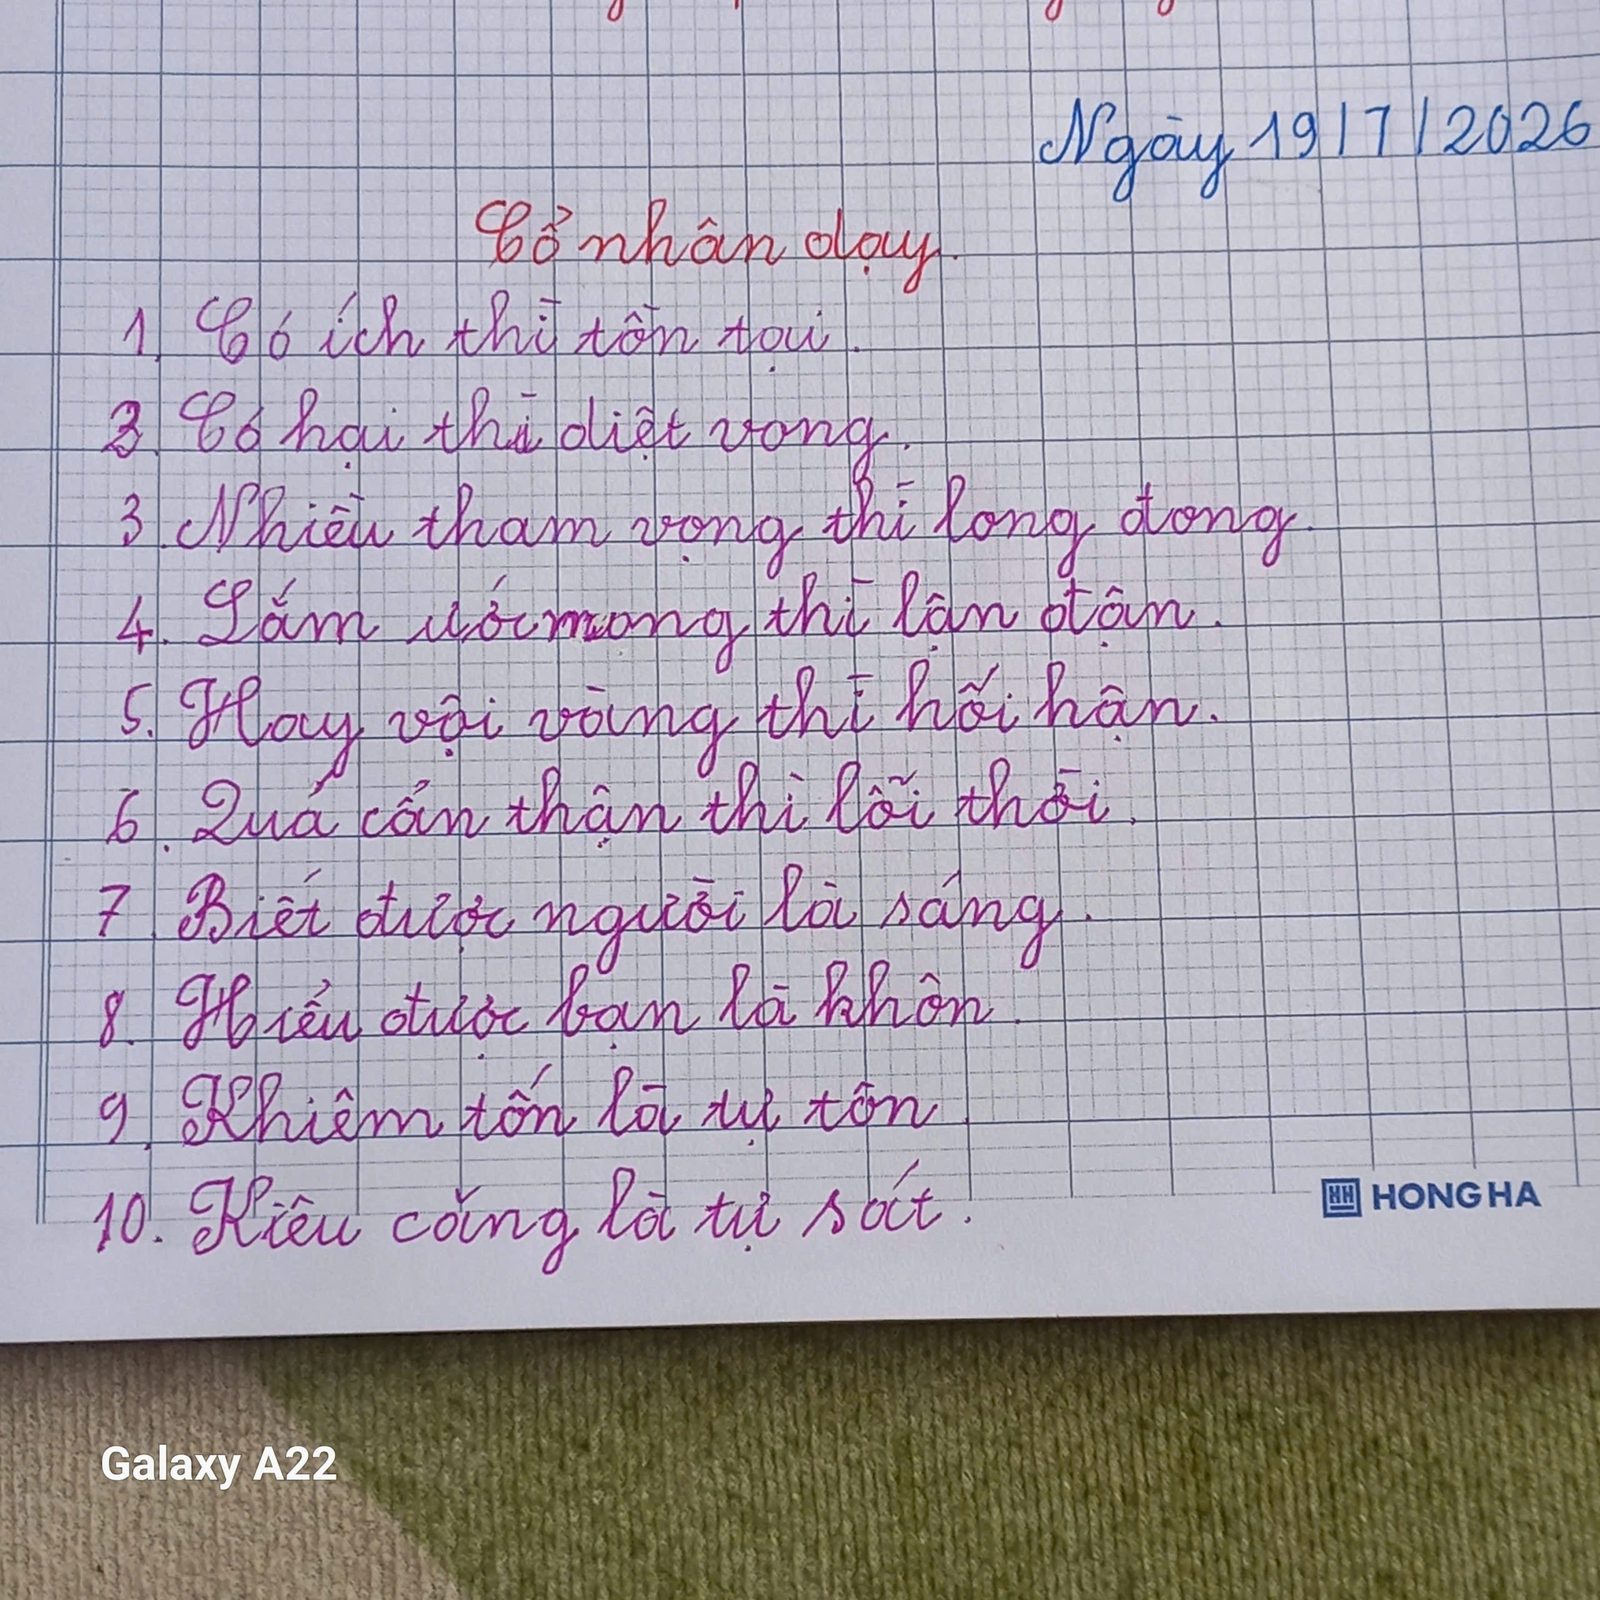 Ngày 19/7/2026
Cổ nhân dạy.
1. Có ích thì tồn tại.
2. Có hại thì diệt vong.
3. Nhiều tham vọng thì long đong.
4. Lắm ước mong thì lận đận.
5. Hay vội vàng thì hối hận.
6. Quá cẩn thận thì lỗi thời.
7. Biết được người là sáng.
8. Hiểu được bạn là khôn.
9. Khiêm tốn là tự tôn.
10. Kiêu căng là tự sát.
HH HONG HA
Galaxy A22